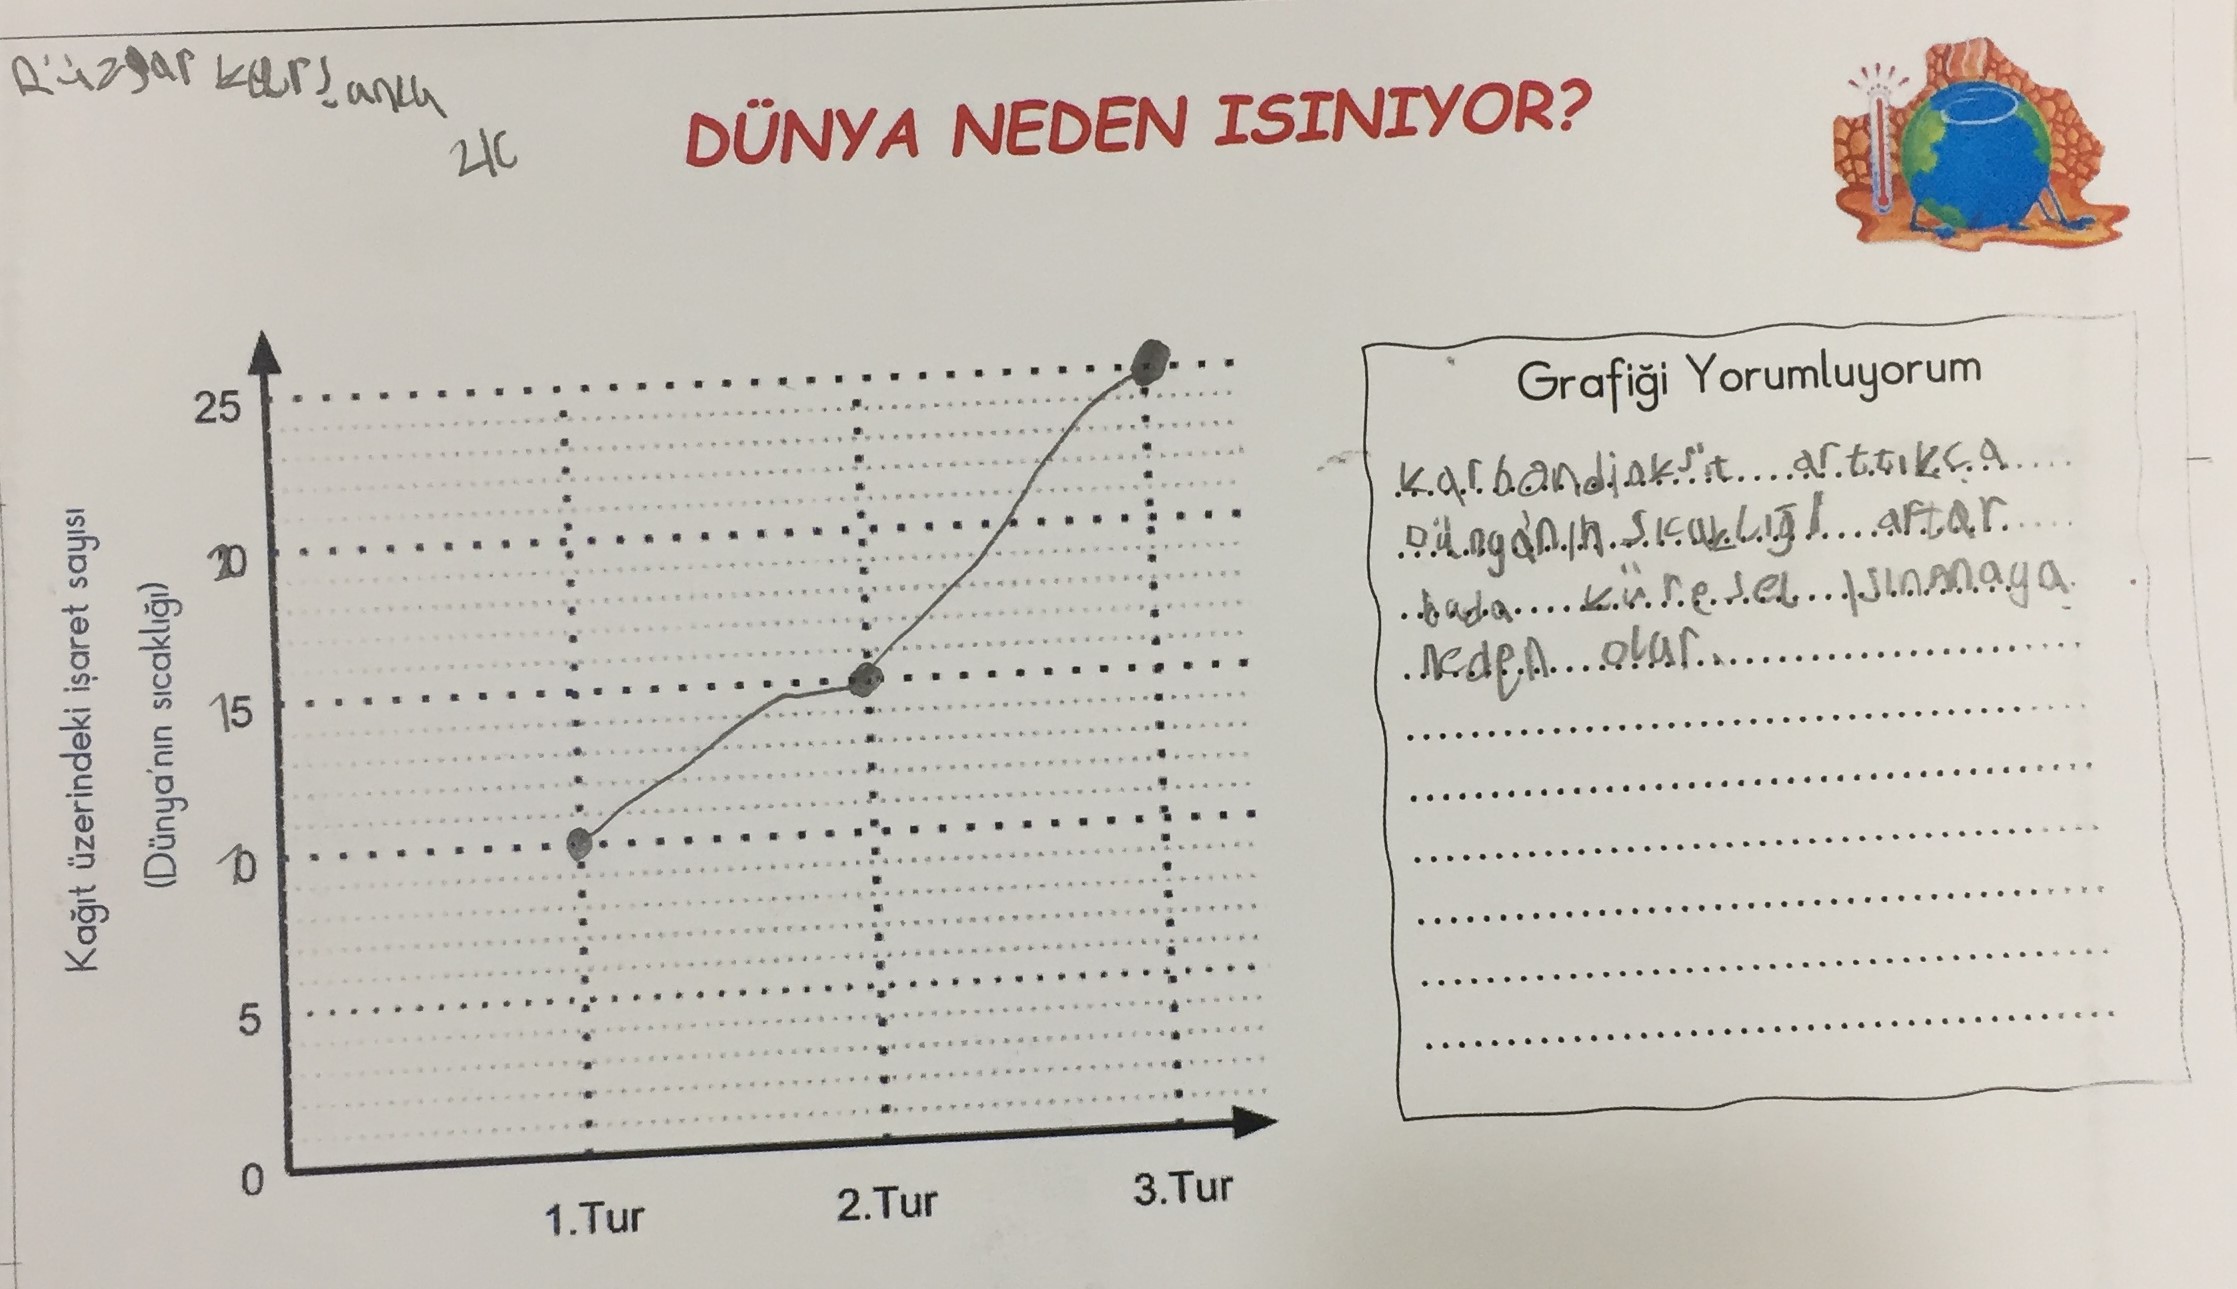 Rüzgar
2/C
DÜNYA NEDEN ISINIYOR?
Kağıt üzerindeki işaret sayısı
(Dünya'nın sıcaklığı)
25
20
15
10
5
0
1.Tur 2.Tur 3.Tur
Grafiği Yorumluyorum
karbondioksit arttıkça
Dünya'nın sıcaklığı artar
buda küresel ısınmaya
neden olur.